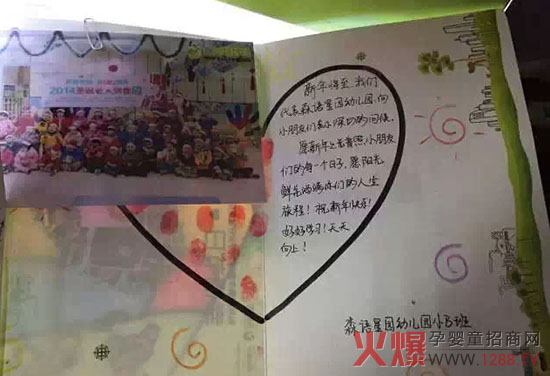 2014
新年将至,我们
代表森语星园幼儿园,向
小朋友们表示深切的问候,
愿新年之光普照小朋友
们的每一个日子,愿阳光
鲜花洒满你们的人生
旅程!祝新年快乐!
好好学习!天天
向上!
森语星园幼儿园小B班
火爆孕婴童招商网
www.1288.TV